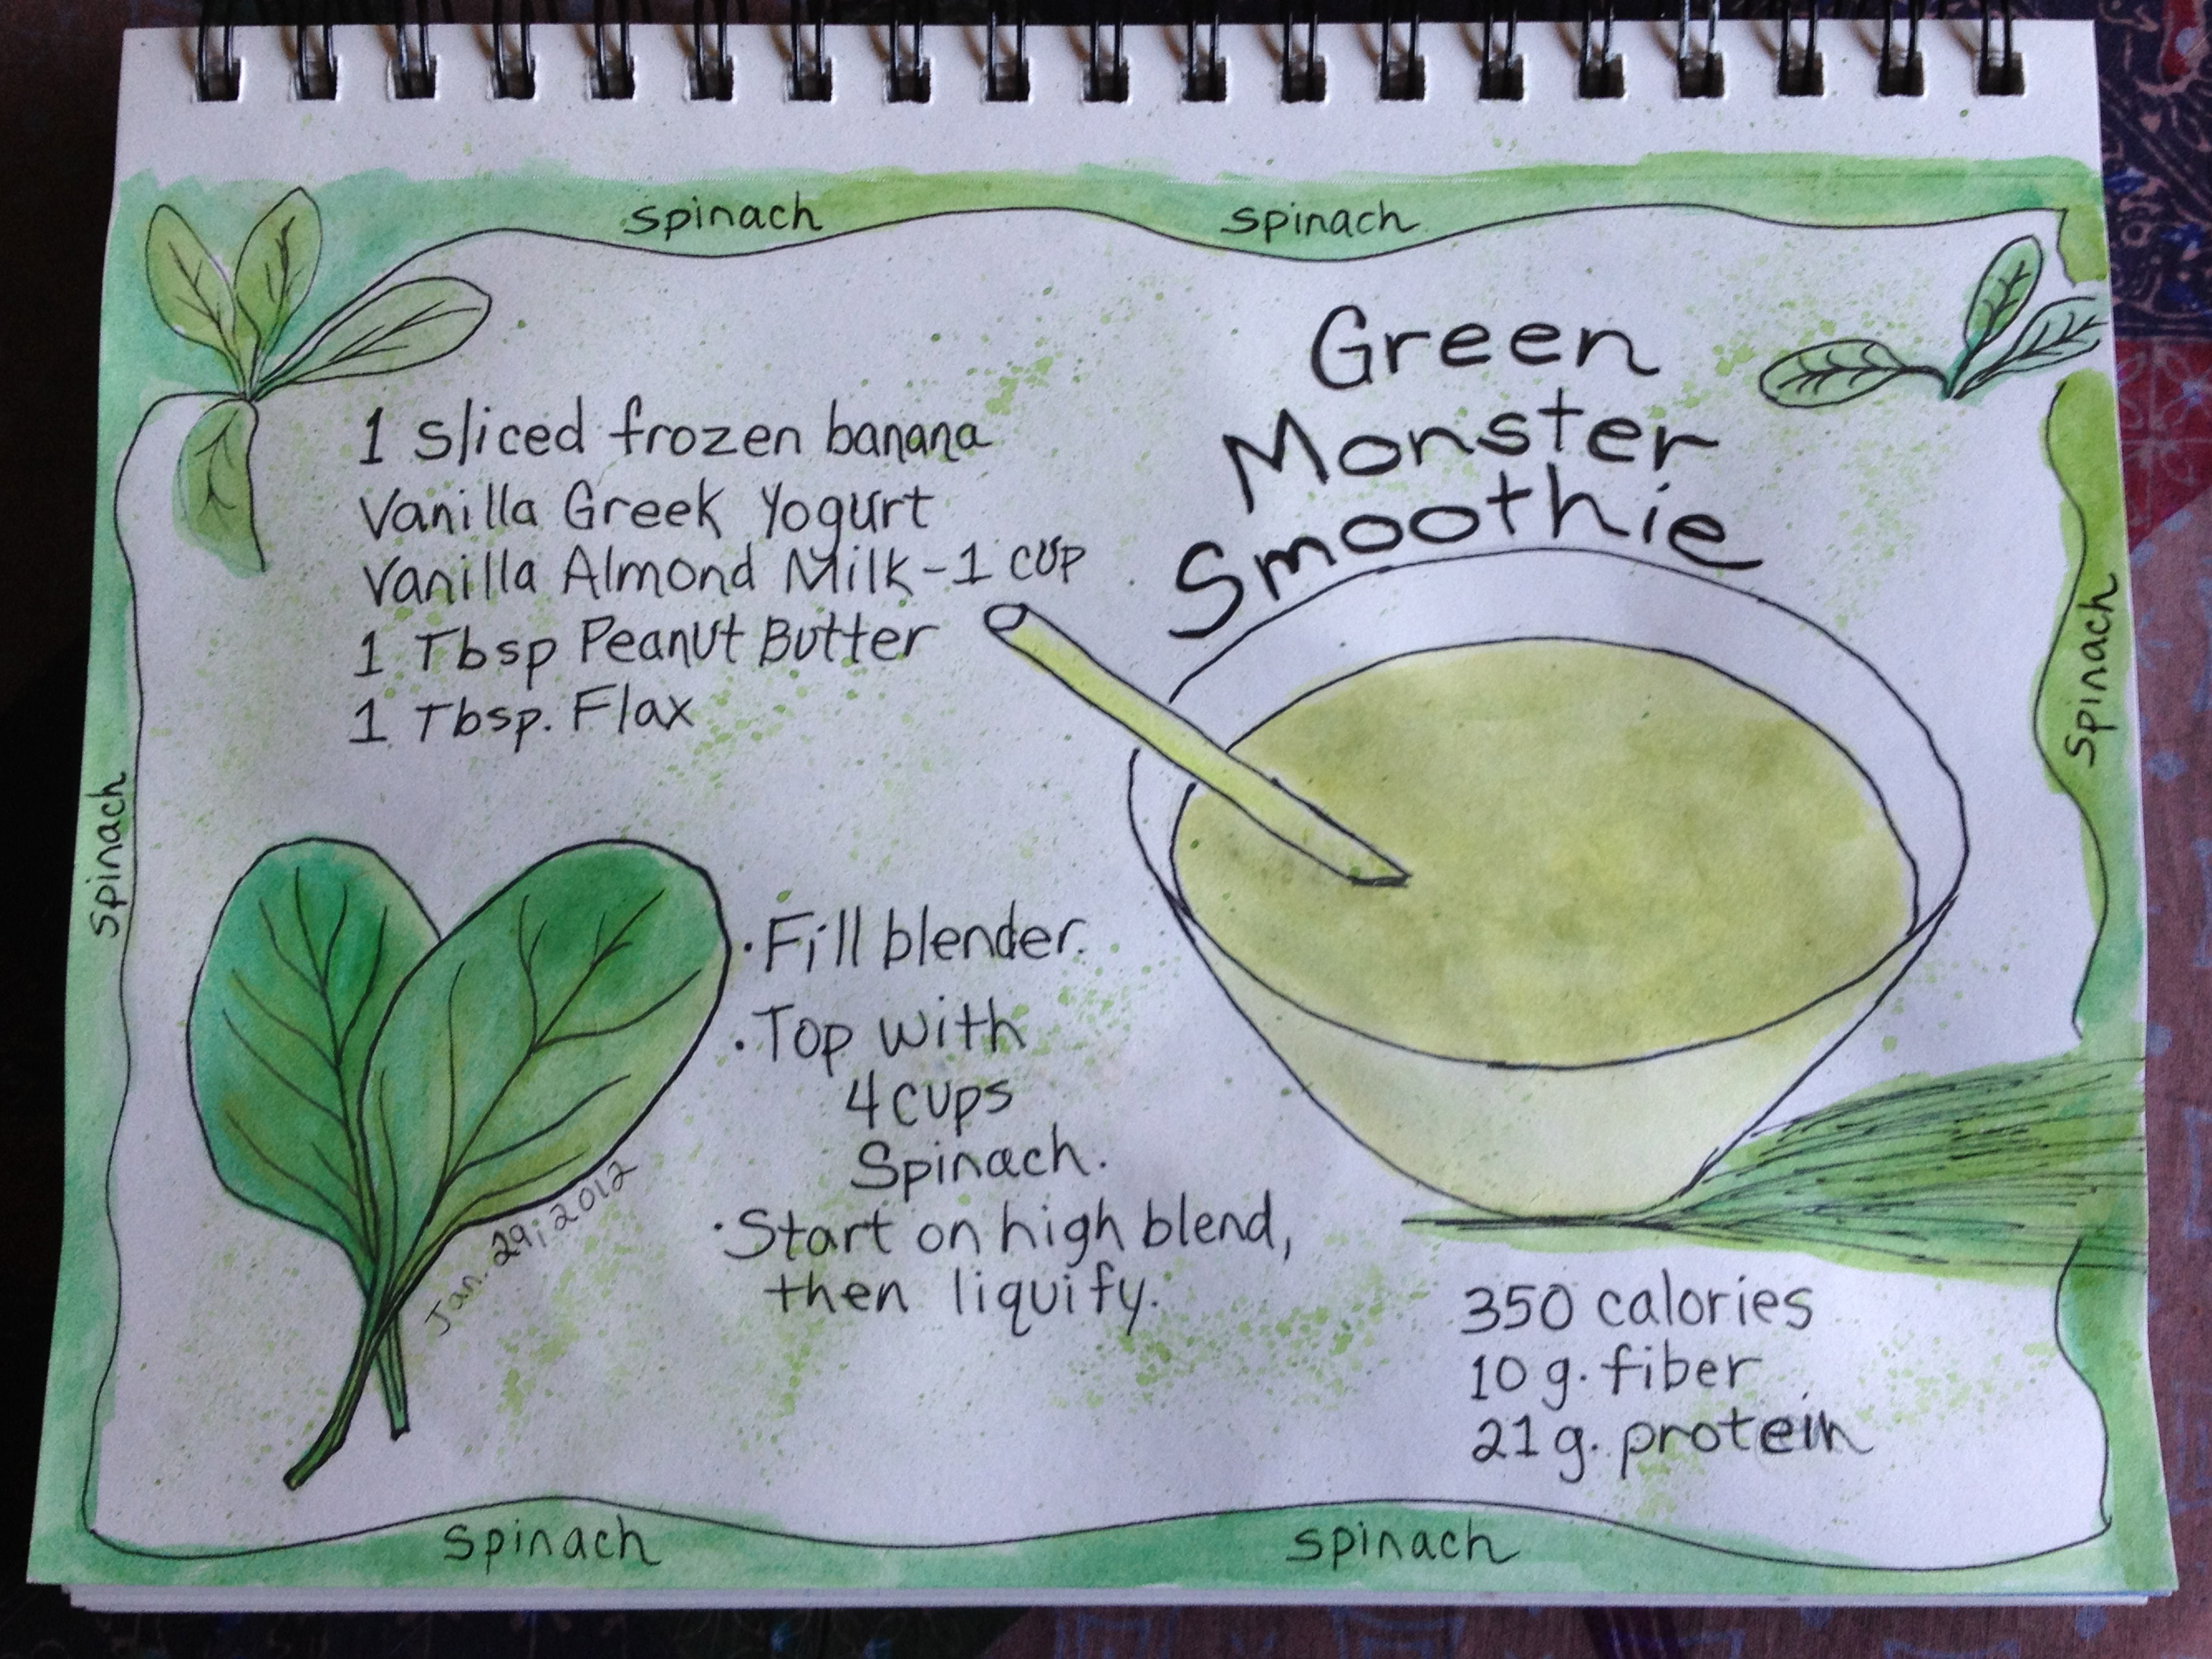 spinach
spinach
Green
Monster
Smoothie
1 sliced frozen banana
Vanilla Greek Yogurt
Vanilla Almond Milk-1 cup
1 Tbsp Peanut Butter
1 Tbsp. Flax
spinach
spinach
• Fill blender.
• Top with
4 cups
Spinach.
• Start on high blend,
then liquify.
Jan. 29, 2012
350 calories
10 g. fiber
21 g. protein
spinach
spinach